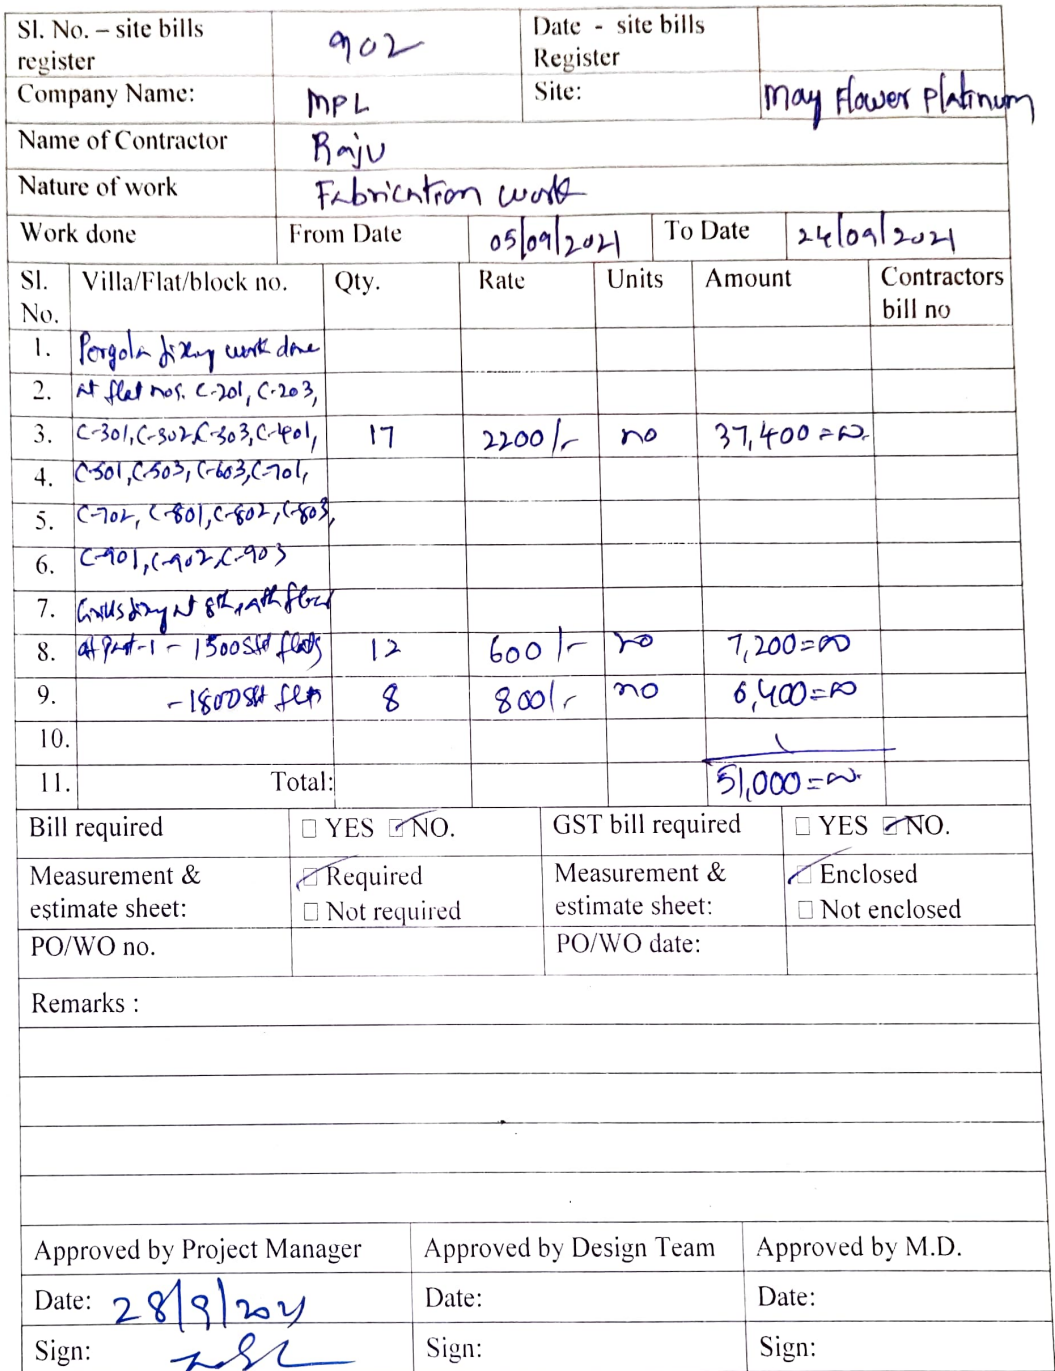 Sl. No. – site bills register 902 Date - site bills Register
Company Name: MPL Site: May Flower Platinum
Name of Contractor Raju
Nature of work Fabrication work
Work done From Date 05/09/2021 To Date 24/09/2021
Sl. No. Villa/Flat/block no. Qty. Rate Units Amount Contractors bill no
1. Pergola fixing work done
2. at flat nos. C-201, C-203,
3. C-301, C-302, C-303, C-401, 17 2200/- no 37,400=00.
4. C-501, C-503, C-603, C-701,
5. C-702, C-801, C-802, C-803,
6. C-901, C-902, C-903
7. Grills fixing at 8th, 9th floor
8. at part-1 - 1500 Sft flats 12 600/- no 7,200=00
9. - 1800 Sft flats 8 800/- no 6,400=00
10.
11. Total: 51,000=00.
Bill required □ YES □ NO. GST bill required □ YES □ NO.
Measurement & estimate sheet: □ Required □ Not required Measurement & estimate sheet: □ Enclosed □ Not enclosed
PO/WO no. PO/WO date:
Remarks :
Approved by Project Manager Approved by Design Team Approved by M.D.
Date: 28/9/2021 Date: Date:
Sign: Sign: Sign: